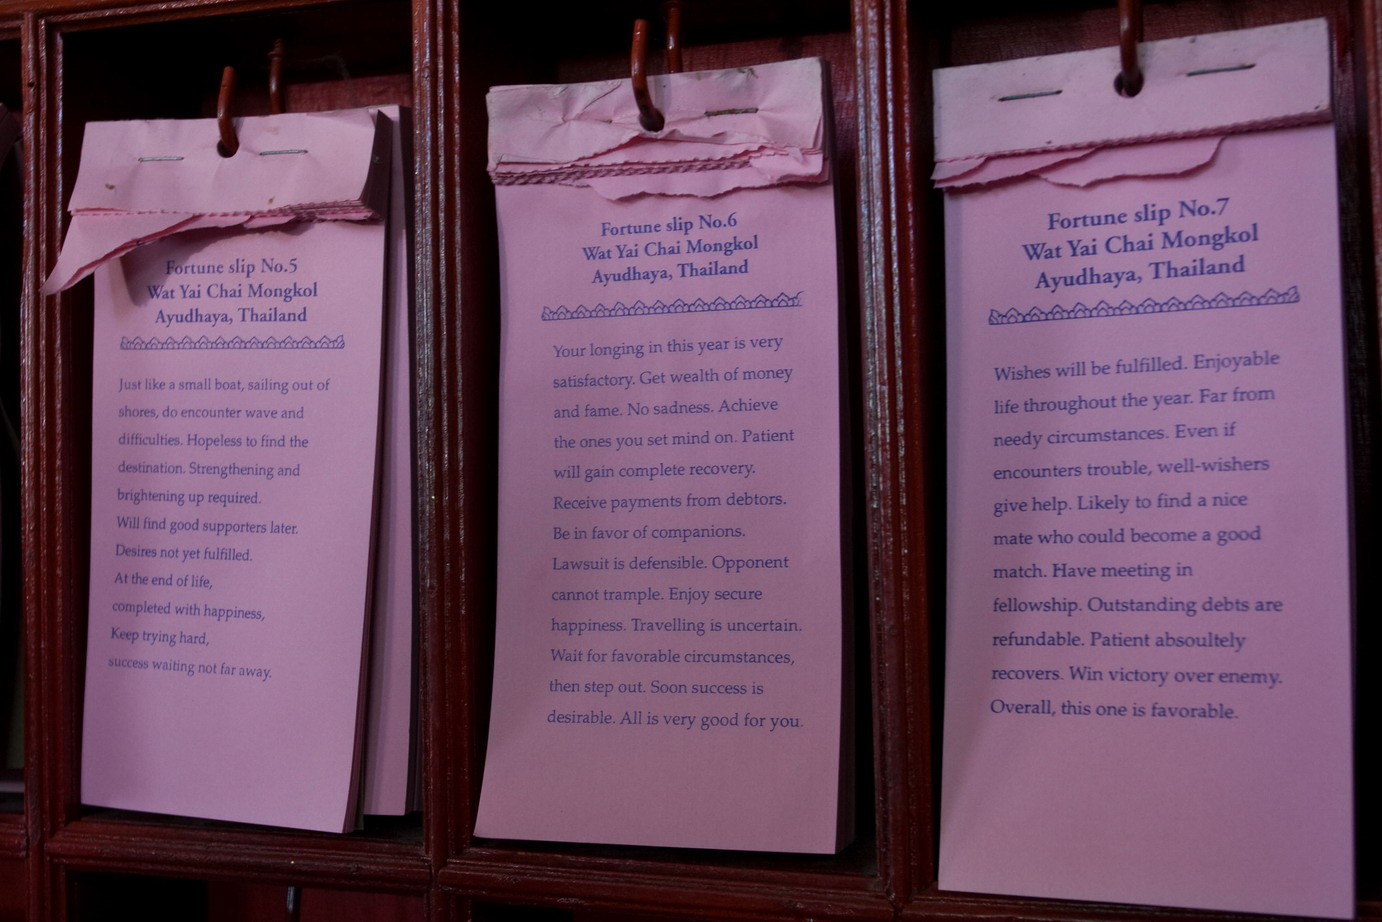 Fortune slip No.5
Wat Yai Chai Mongkol
Ayudhaya, Thailand
Just like a small boat, sailing out of
shores, do encounter wave and
difficulties. Hopeless to find the
destination. Strengthening and
brightening up required.
Will find good supporters later.
Desires not yet fulfilled.
At the end of life,
completed with happiness,
Keep trying hard,
success waiting not far away.
Fortune slip No.6
Wat Yai Chai Mongkol
Ayudhaya, Thailand
Your longing in this year is very
satisfactory. Get wealth of money
and fame. No sadness. Achieve
the ones you set mind on. Patient
will gain complete recovery.
Receive payments from debtors.
Be in favor of companions.
Lawsuit is defensible. Opponent
cannot trample. Enjoy secure
happiness. Travelling is uncertain.
Wait for favorable circumstances,
then step out. Soon success is
desirable. All is very good for you.
Fortune slip No.7
Wat Yai Chai Mongkol
Ayudhaya, Thailand
Wishes will be fulfilled. Enjoyable
life throughout the year. Far from
needy circumstances. Even if
encounters trouble, well-wishers
give help. Likely to find a nice
mate who could become a good
match. Have meeting in
fellowship. Outstanding debts are
refundable. Patient absoultely
recovers. Win victory over enemy.
Overall, this one is favorable.